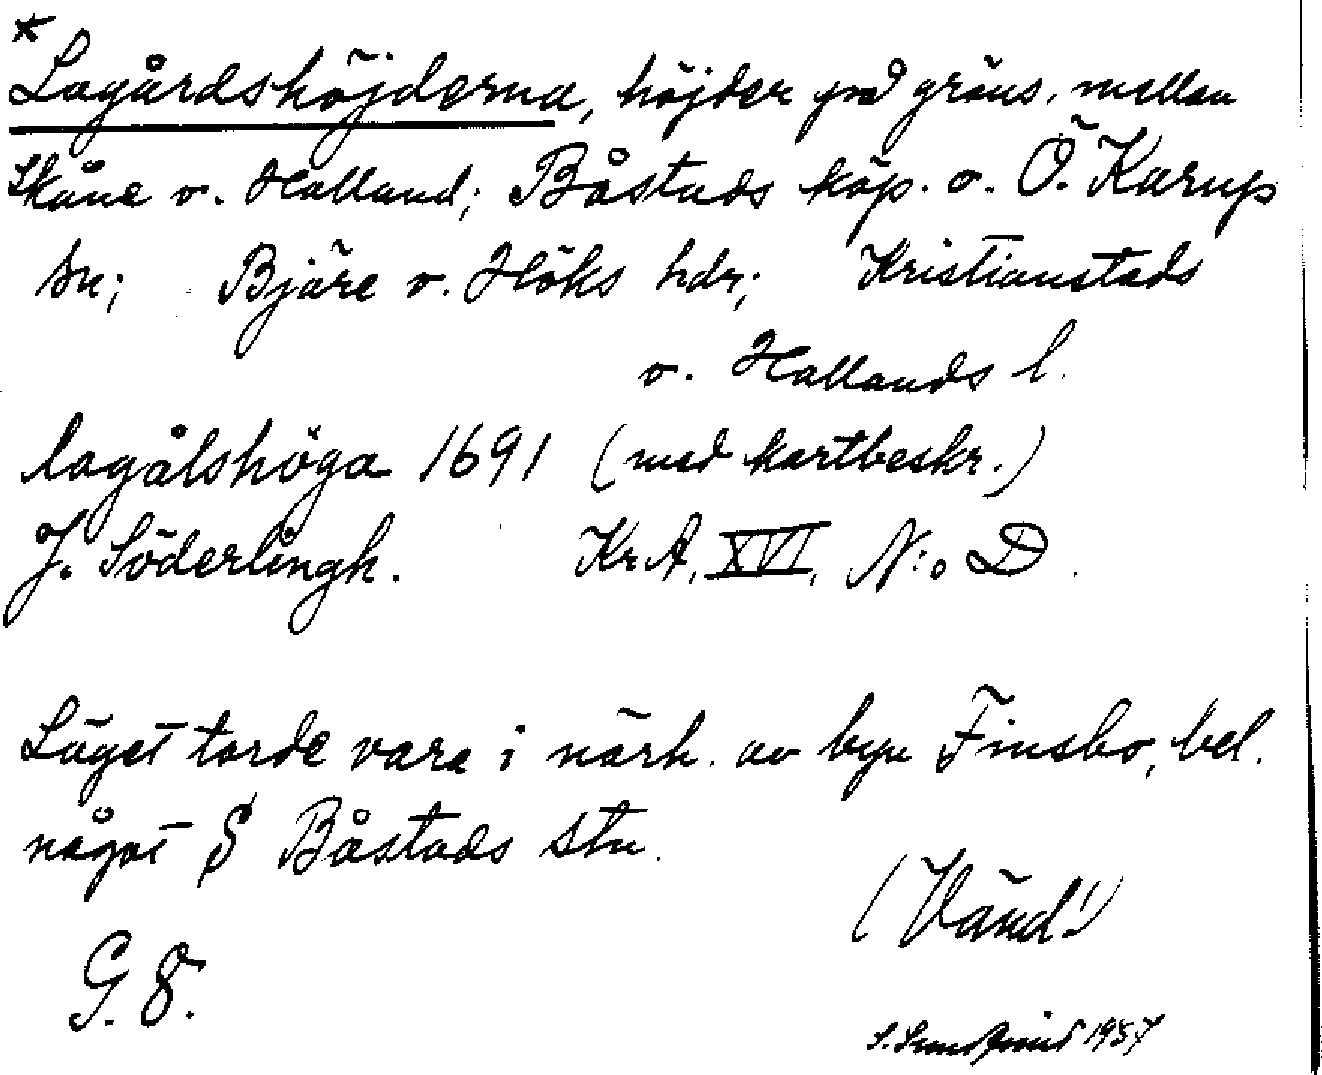 *
Lagårdshöjderna, höjder på gräns. mellan
Skåne o. Halland; Båstads köp. o. Ö. Karup
sn; Bjäre o. Höks hdr; Kristianstads
o. Hallands l.
lagålshöga 1691 (med kartbeskr.)
J. Söderlingh. KrA, XVI, N:o D.
Läget torde vara i närh. av byn Finsbo, bel.
något S Båstads stn.
(Vänd!)
G. 8.
1957